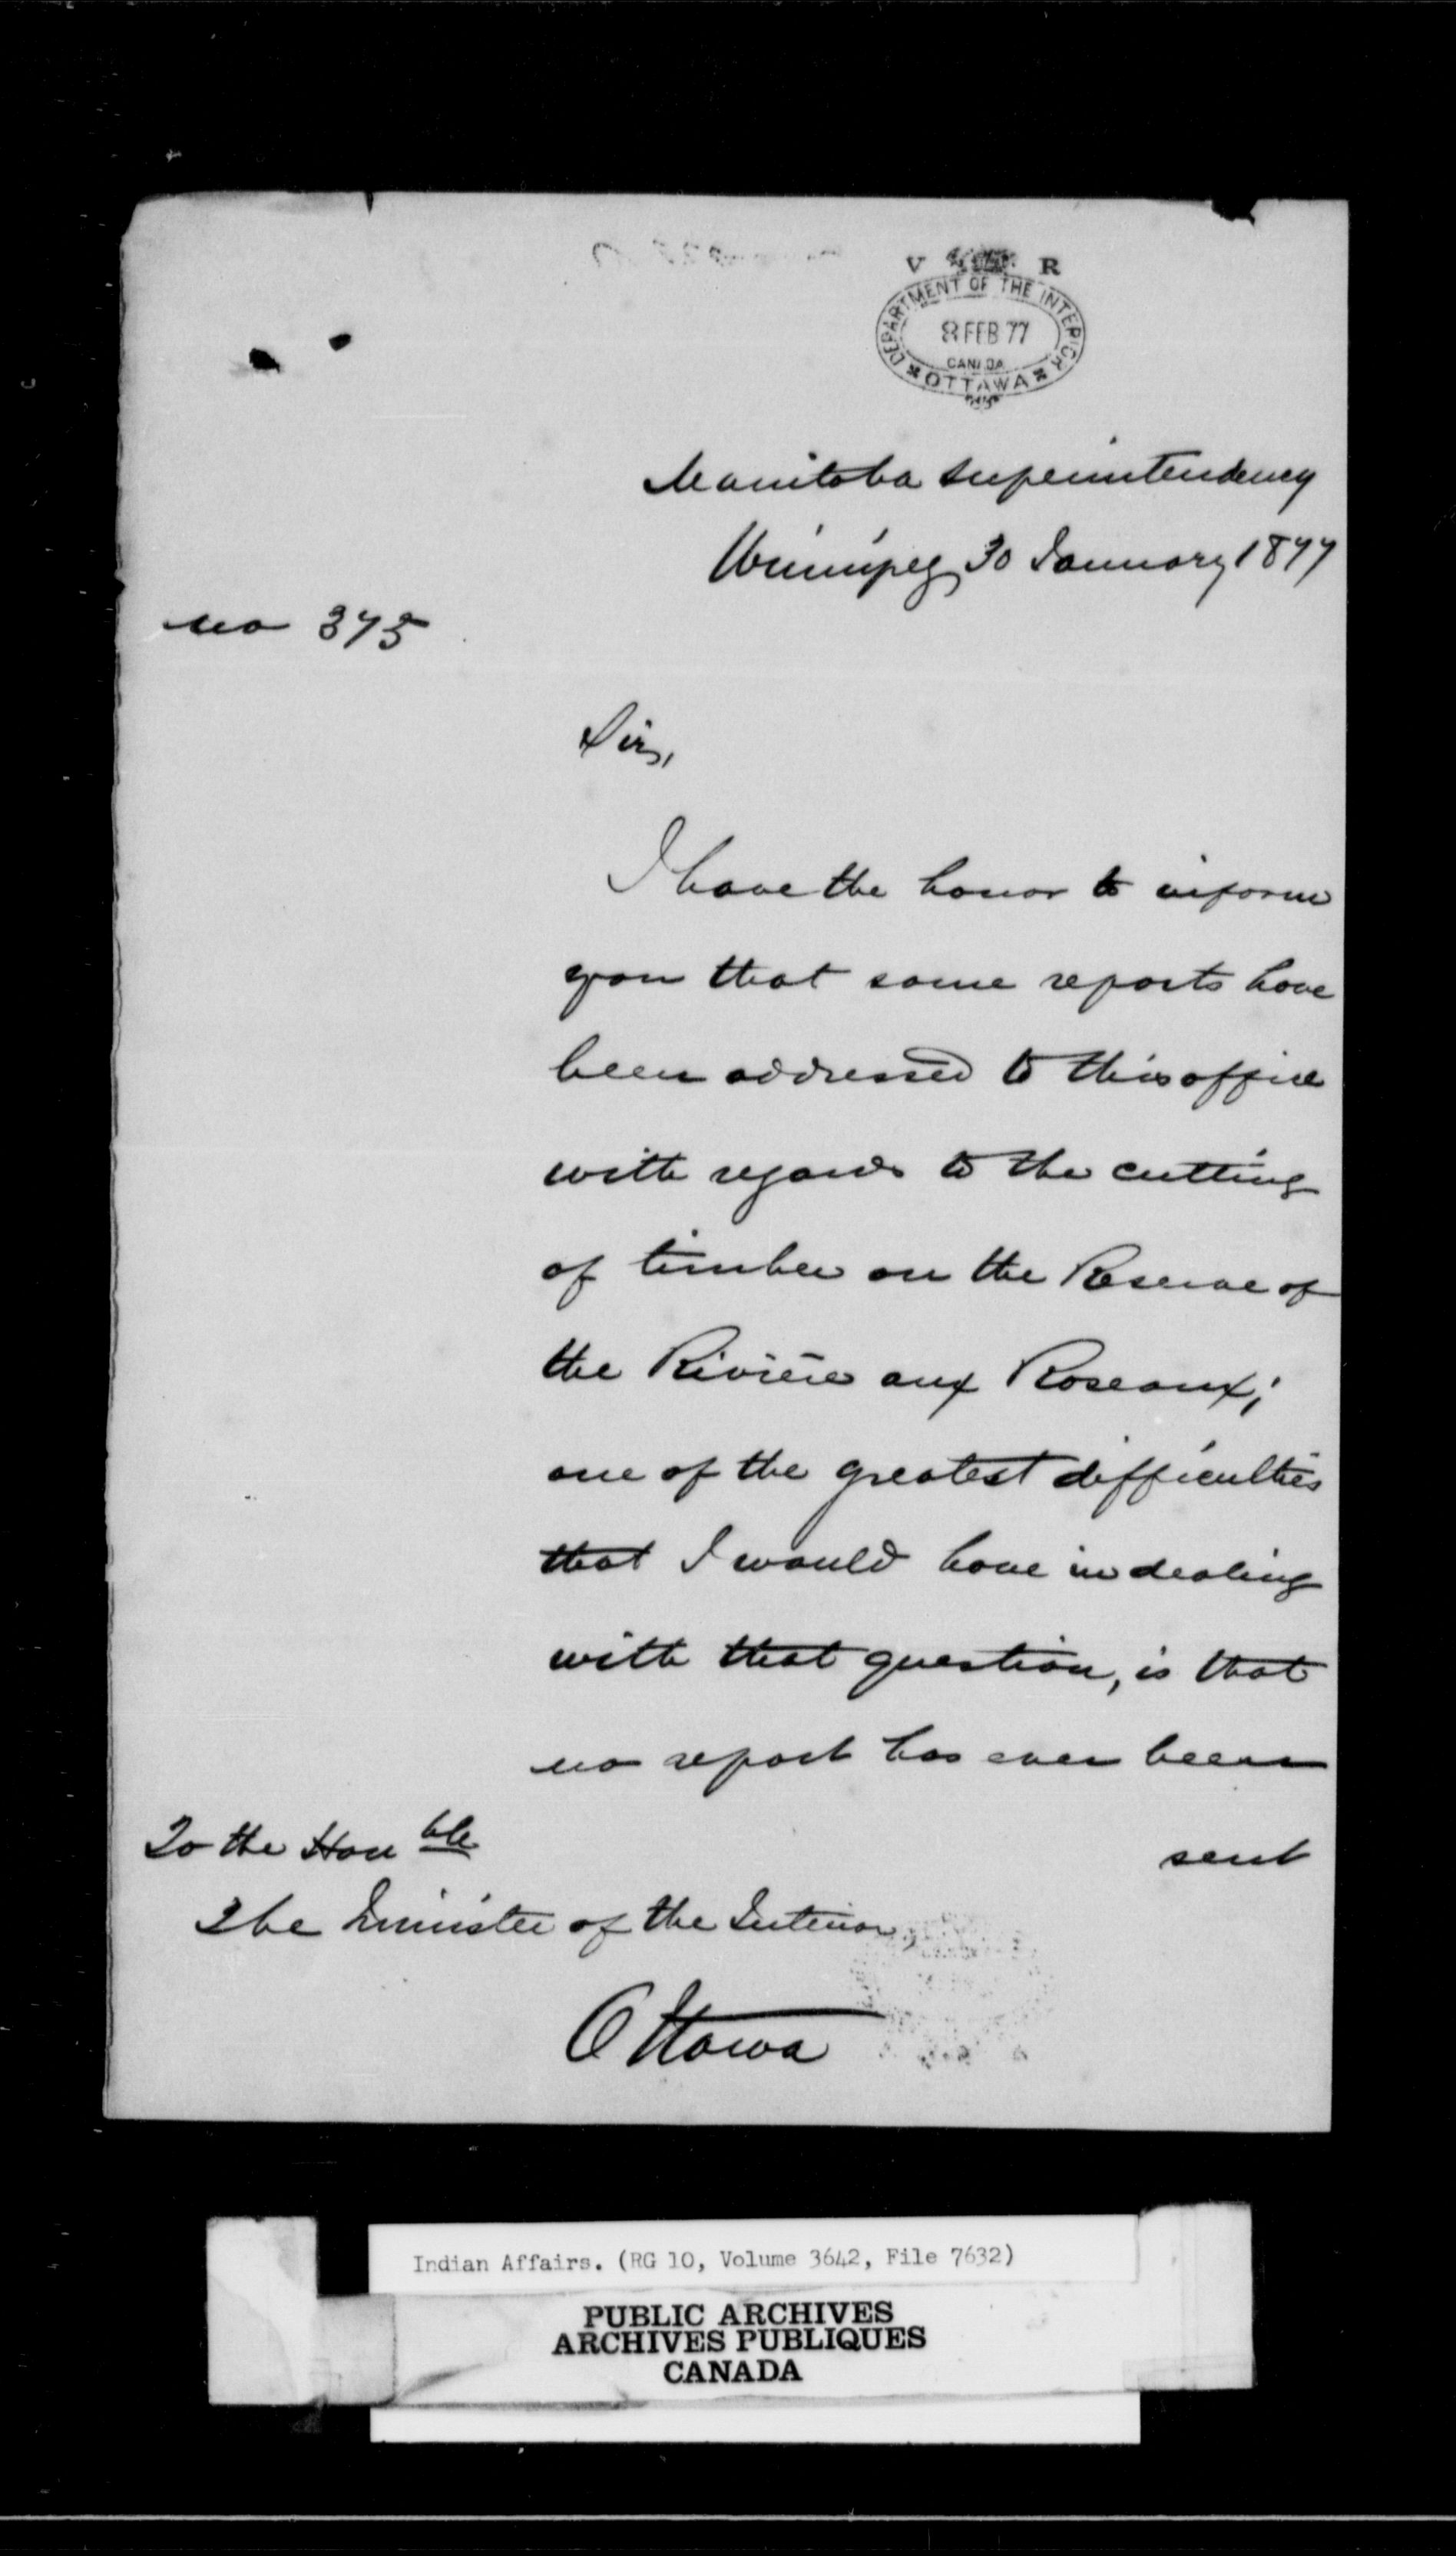 V R
DEPARTMENT OF THE INTERIOR
8 FEB 77
CANADA
OTTAWA
Manitoba Superintendency
Winnipeg, 30 January 1877
no 375
Sir,
I have the honor to inform
you that some reports have
been addressed to this office
with regards to the cutting
of timber on the Reserve of
the Rivière aux Roseaux;
one of the greatest difficulties
that I would have in dealing
with that question, is that
no report has ever been
sent
To the Honble
The Minister of the Interior,
Ottawa
Indian Affairs. (RG 10, Volume 3642, File 7632)
PUBLIC ARCHIVES
ARCHIVES PUBLIQUES
CANADA